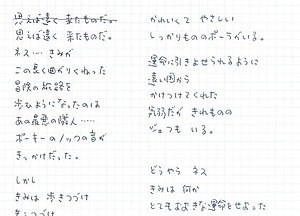 思えば遠く 来たものだ。
思えば遠く 来たものだ。
ネス… きみが
この長く曲がりくねった
冒険の旅路を
歩むようになったのは
あの最悪の隣人……
ポーキーのノックの音が
きっかけだった。
しかし
きみは 歩きつづけ
かわいくて やさしい
しっかりものの ポーラがいる。
運命に引きよせられるように
遠い国から
かけつけてくれた
気弱だが きれものの
ジェフも いる。
どうやら ネス
きみは 何か
とてもおおきな運命をせおった